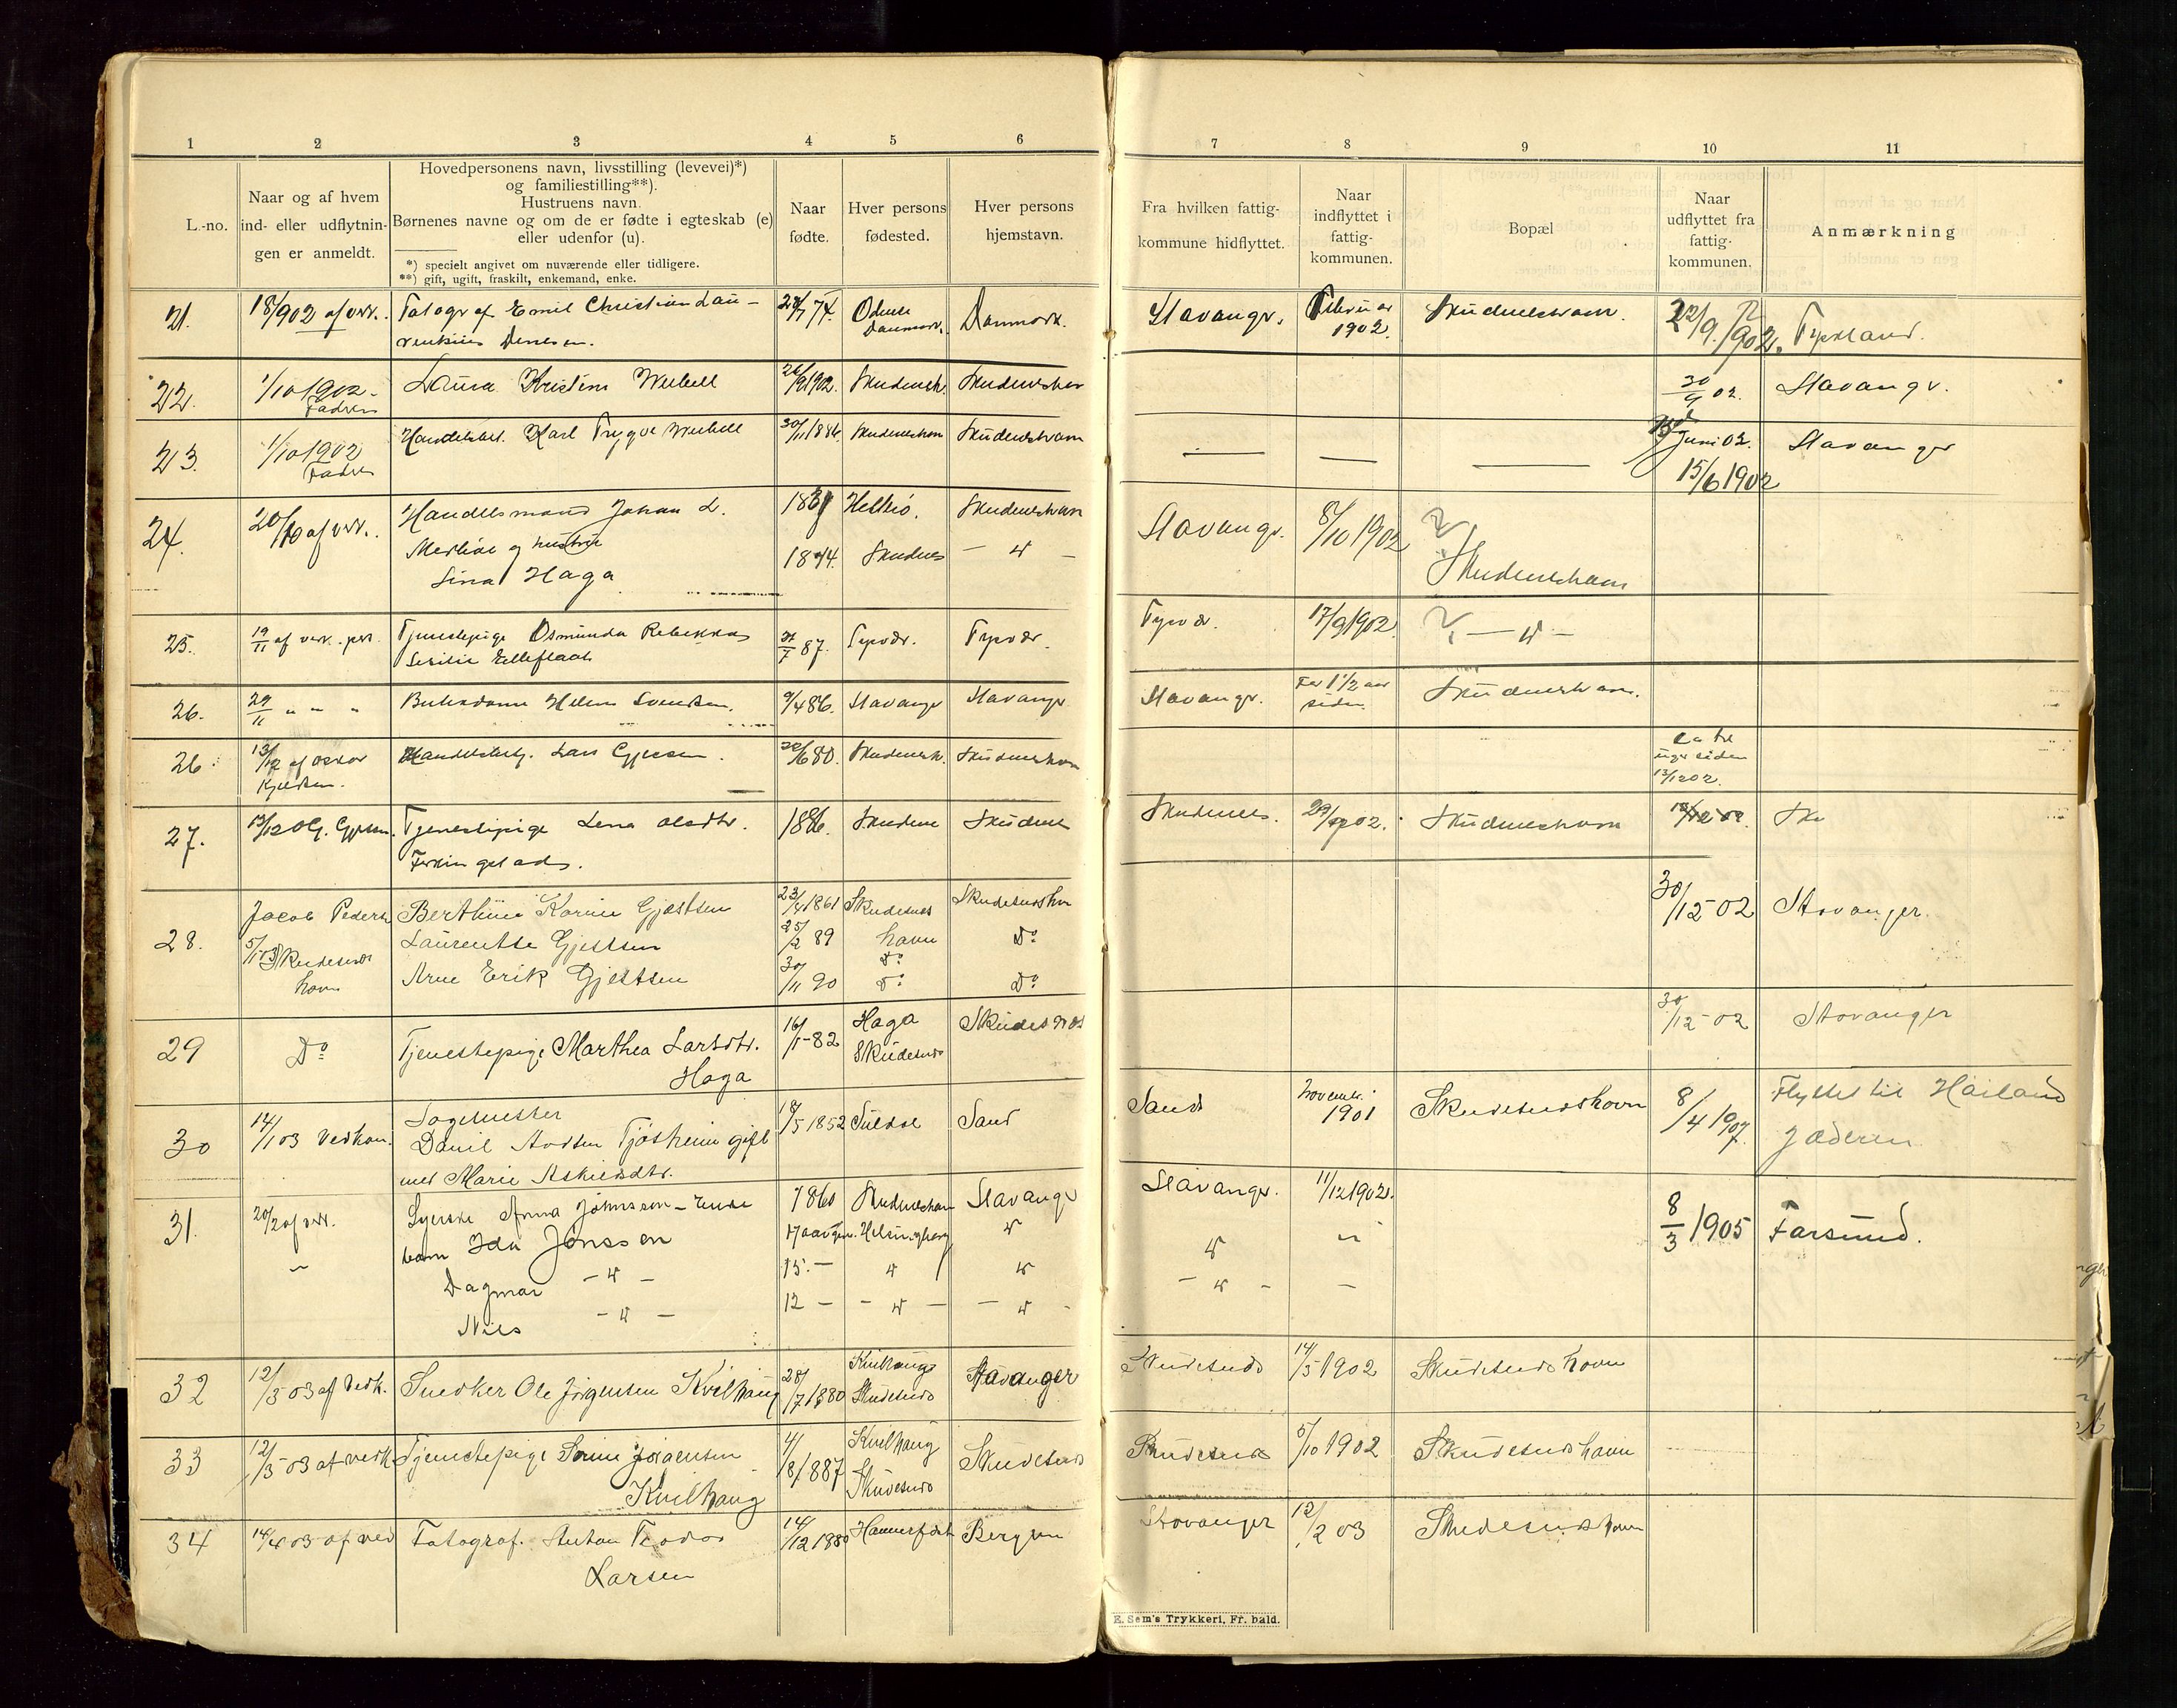 1 2 3 4 5 6 7 8 9 10 11
L.-no.
Naar og af hvem
ind- eller udflytnin-
gen er anmeldt.
Hovedpersonens navn, livsstilling (levevei)*)
og familiestilling**).
Hustruens navn.
Børnenes navne og om de er fødte i egteskab (e)
eller udenfor (u).
*) specielt angivet om nuværende eller tidligere.
**) gift, ugift, fraskilt, enkemand, enke.
Naar
fødte.
Hver persons
fødested.
Hver persons
hjemstavn.
Fra hvilken fattig-
kommune hidflyttet.
Naar
indflyttet i
fattig-
kommunen.
Bopæl
Naar
udflyttet fra
fattig-
kommunen.
Anmærkning
21. 18/902 af vedk. Fotograf Emil Christian Lau- 74. Odense Danmark. Stavanger. Februar 1902. Skudeneshavn. 22/9. 1902. Tyskland.
Danmark.
22. 1/10 1902. Laura Kristine 26/9 1902. Skudenesh. Skudeneshavn 30/9 02. Stavanger.
Fadren
23. 1/10 1902 Karl Trygve 30/11 1886. Skudeneshavn Skudeneshavn — — — Juni 02. Stavanger
Fadren 15/6 1902
24. 20/10 af vedk. Handelsmand Johan L. Skudeneshavn Stavanger. 8/10 1902 ?
og hustru 1844. Skudenes — " — Skudeneshavn
Lina Haga
25. 19/11 af vedk. Tjenestepige Osmunda Rebekka 87. Tysvær. Tysvær. Tysvær. 17/9 1902. ? — " —
26. 29/11 " " " Helene Svendsen. 9/4 86. Stavanger Stavanger Stavanger. For 1 1/2 aar Skudeneshavn.
siden
26. 13/12 af Oskar Lars Gjessen. 22/6 80. Skudenesh. Skudeneshavn
siden
13/12 02.
27. 13/12 Tjenestepige Lena Olsdtr. 1886. Skudene Skudene Skudenes. 02. Skudeneshavn Sk
Ferkingstad.
28. Jacob Peders Berthine Karine Gjestsen 23/4 1861 Skudenes Skudeneshavn 30/12 02 Stavanger.
5/1 03 Skudenes Laurentse Gjestsen 25/2 89 havn Do
havn Arne Erik Gjestsen 30/11 90 Do Do
29 Do Tjenestepige Marthea Larsdtr. 16/1-82 Haga Skudenes 30/12-02 Stavanger
Haga Skudenes
30 14/1 03 Vedkom. Daniel Tjösheim gift 18/5 1852 Suldal Sand Sand November 1901 Skudeneshavn 8/4 1907. Flyttet til
med Marie Jæderen
31. 20/2 af vedk. Syerske Anna Johnsson - Enke 1860 Skudeneshavn Stavanger Stavanger. 11/12 1902. 8/3 1905 Farsund.
barn Ida Jönsson 17 aar Helsingborg " " "
Dagmar — " — 15. — " " — " — —
Nils — " — 12 — — " — — " —
32 12/3 03 af Vedk. Snedker Ole Jörgensen Kvilhaug 28/7 1880 Kvilhaug Skudenes Stavanger Skudenes 14/5 1902 Skudeneshavn
33 12/3 03 af vedk Tjenestepige Jörgensen 4/8 1887 Kvilhaug Skudenes Skudenes Skudenes 5/10 1902 Skudeneshavn
Kvilhaug
34 14/4 03 af ved Fotograf. Anton Teodor 14/12 1880 Hammerfest Bergen Stavanger 12/2 03 Skudeneshavn
Larsen
E. Sem's Trykkeri, Fr. hald.